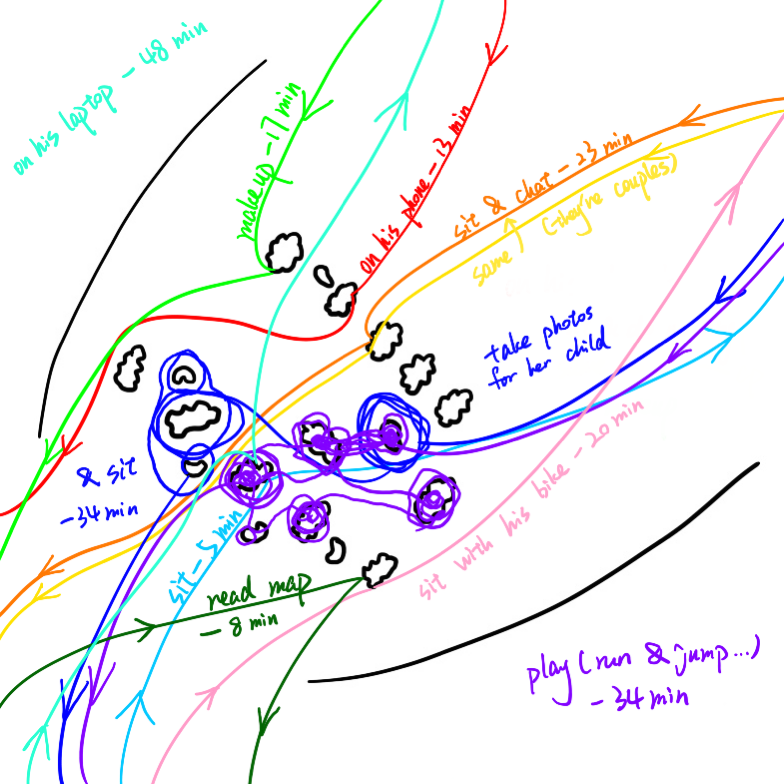 on his laptop - 48 min
make up - 17 min
on his phone - 13 min
sit & chat - 23 min
same (they're couples)
take photos
for her child
& sit
- 34 min
sit - 5 min
read map
- 8 min
sit with his bike - 20 min
play (run & jump...)
- 34 min